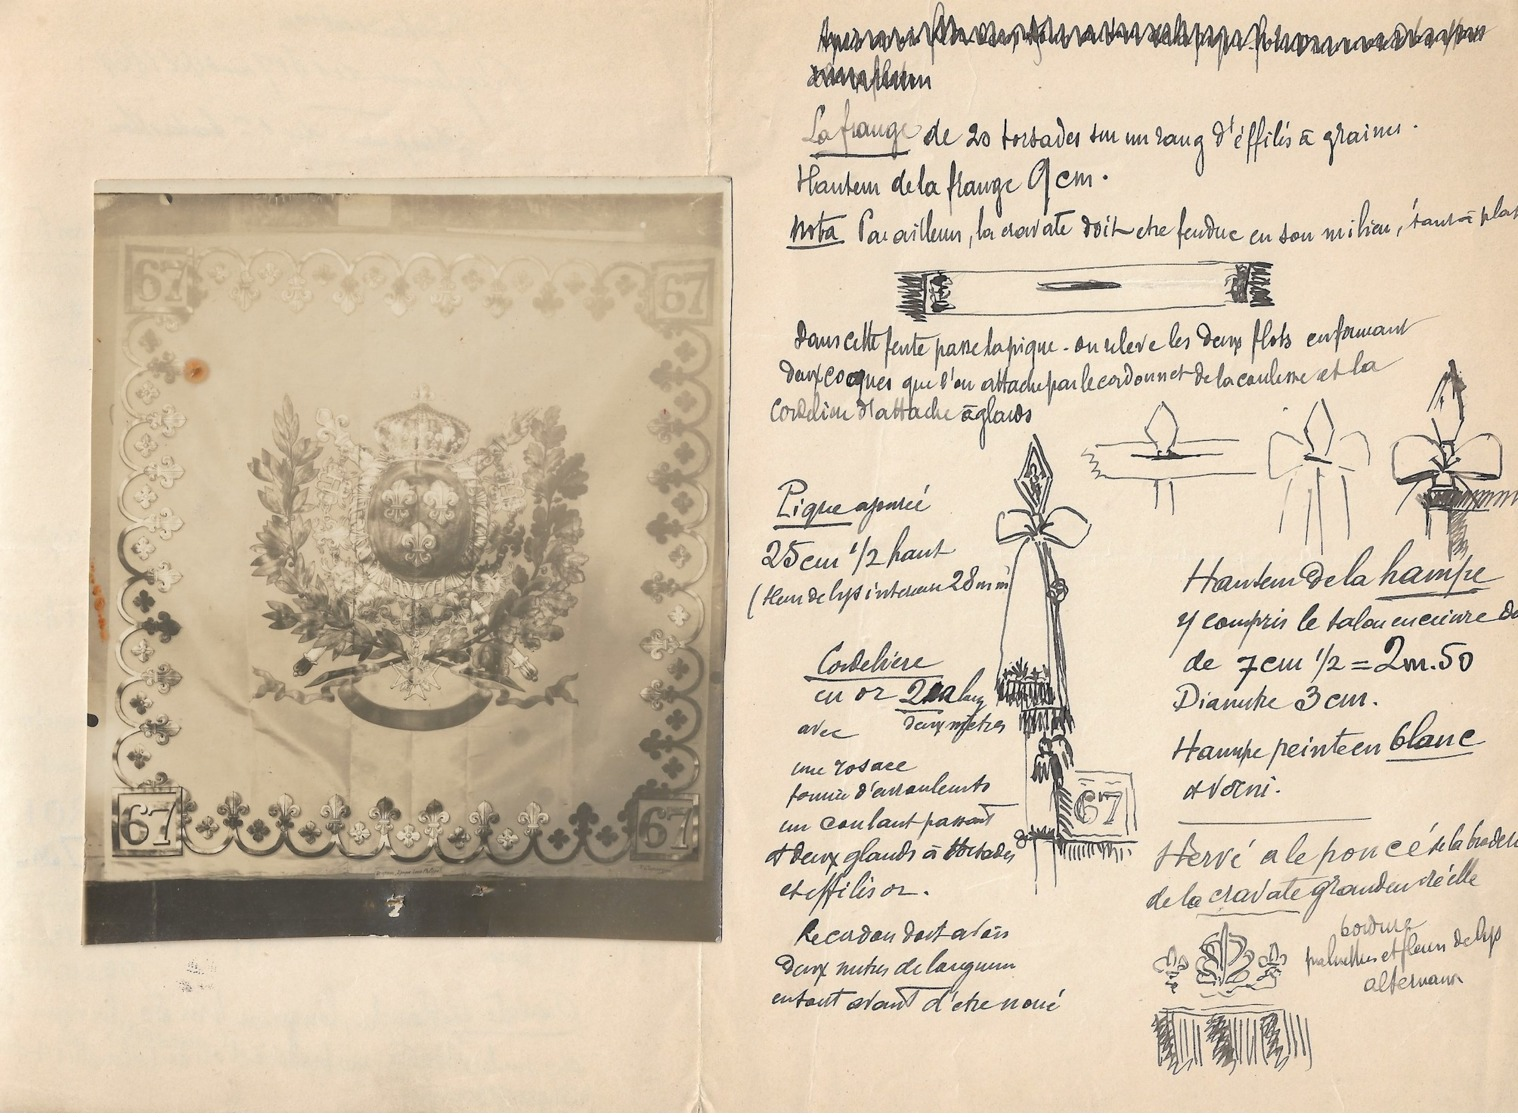 67
67
67
67
La frange de 20 torsades sur un rang d'éffilés à graines.
Hauteur de la frange 9 cm.
Nota Par ailleurs, la cravate doit etre fendue en son milieu, étant à plat
Dans cette fente passe la pique - on releve les deux flots en formant
deux coques que l'on attache par le cordonnet de la coulisse et la
cordeliere d'attache à glands
Pique ajourée
25 cm 1/2 haut
(fleur de lys interieure 28 m m
Cordeliere
en or 2 m long
deux mètres
avec
une rosace
formée d'enroulements
un coulant passant
et deux glands à torsades
et effilés or.
Le cordon doit avoir
deux metres de longueur
en tout avant d'etre noué
67
Hauteur de la hampe
y compris le talon en cuivre de
de 7 cm 1/2 = 2 m. 50
Diametre 3 cm.
Hampe peinte en blanc
et verni.
Hervé a le poncé de la broderie
de la cravate grandeur réélle
bordure
palmettes et fleurs de lys
alternant